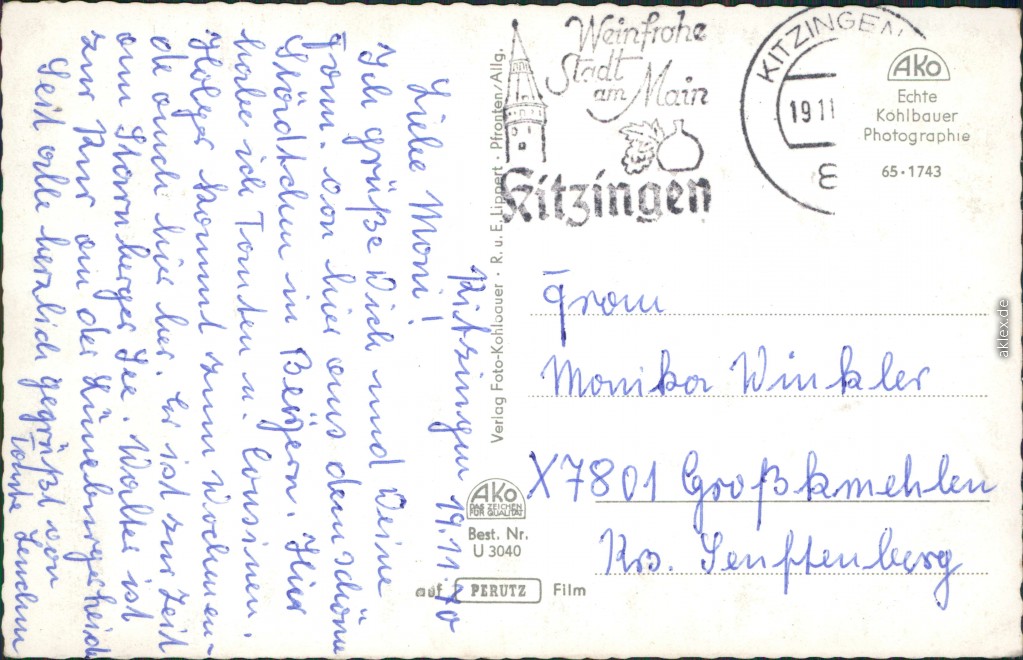 Kitzingen 19.11.70
Liebe Moni!
Ich grüße Dich und Deine
Fam. von hier aus dem schönen
Städtchen in Bayern. Hier
habe ich Tanten u. Cousinen.
Holger kommt zum Wochenen-
de auch hier her. Er ist zur Zeit
am Starnberger See. Walter ist
zur Kur an der Lüneburgerheide
Seit alle herzlich gegrüßt von
Tante Lenchen
Verlag Foto-Kohlbauer · R. u. E. Lippert · Pfronten/Allg.
Weinfrohe
Stadt
am Main
Kitzingen
KITZINGEN
19.11
8
AKO
Echte
Kohlbauer
Photographie
65·1743
Frau
Monika Winkler
X7801 Großkmehlen
Krs. Senftenberg
AKO
DAS ZEICHEN
FÜR QUALITÄT
Best. Nr.
U 3040
auf PERUTZ Film
aklex.de